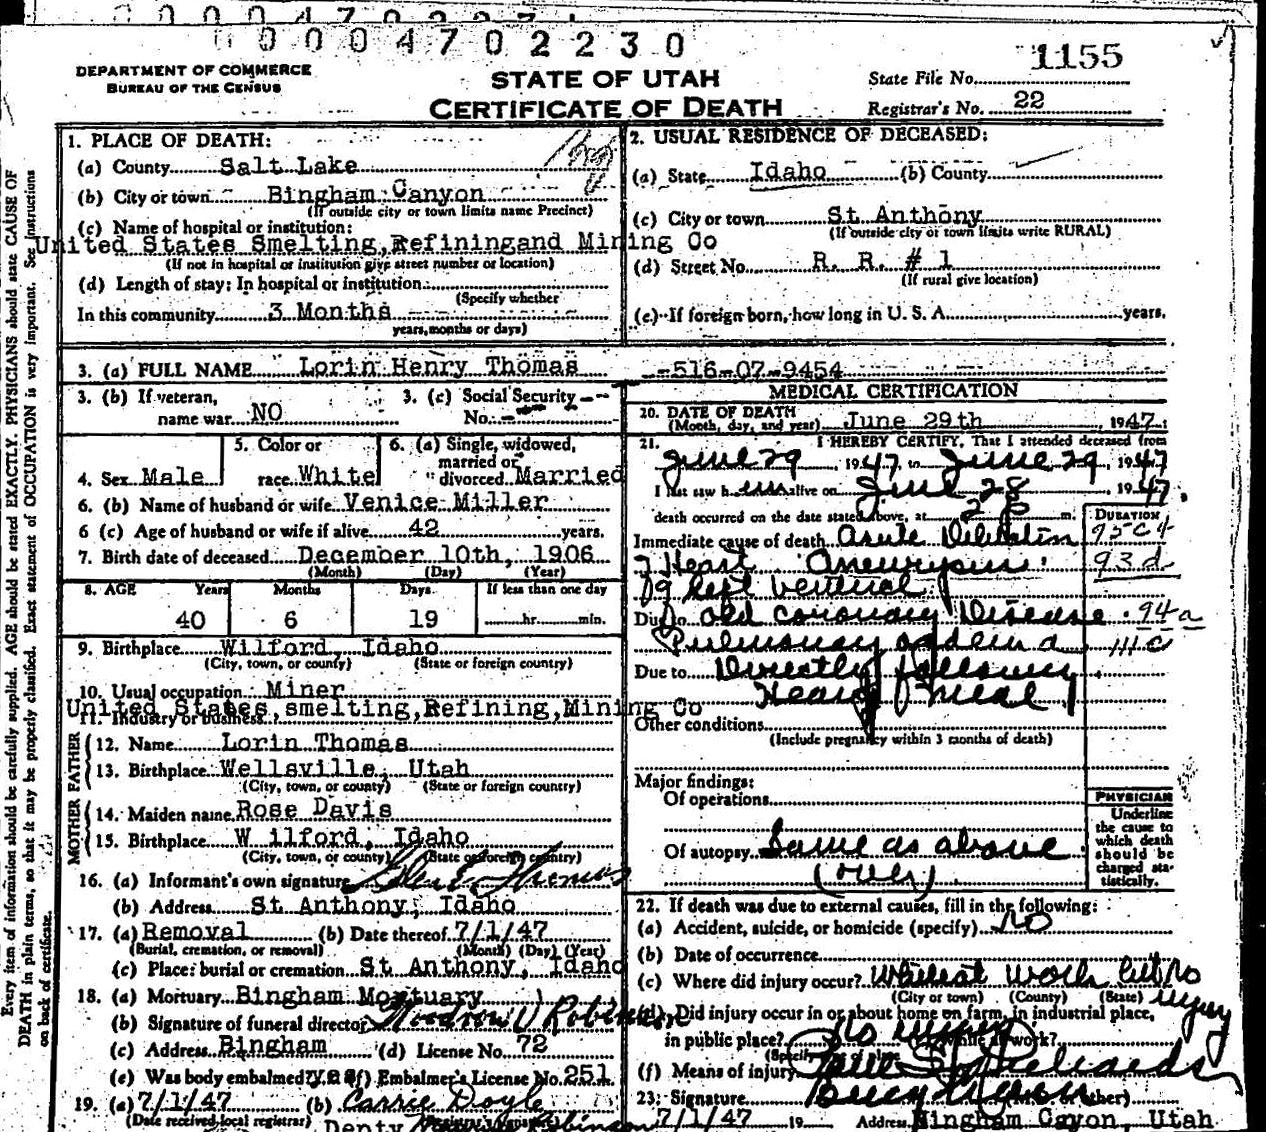 0 0 0 4 7 0 2 2 3 0
1155
DEPARTMENT OF COMMERCE
BUREAU OF THE CENSUS
STATE OF UTAH
CERTIFICATE OF DEATH
State File No.
Registrar's No. 22
Every item of information should be carefully supplied. AGE should be stated EXACTLY. PHYSICIANS should state CAUSE OF
DEATH in plain terms, so that it may be properly classified. Exact statement of OCCUPATION is very important. See instructions
on back of certificate.
1. PLACE OF DEATH:
(a) County Salt Lake
(b) City or town Bingham Canyon
(If outside city or town limits name Precinct)
(c) Name of hospital or institution:
United States Smelting,Refiningand Mining Co
(If not in hospital or institution give street number or location)
(d) Length of stay: In hospital or institution
(Specify whether
In this community 3 Months
years, months or days)
2. USUAL RESIDENCE OF DECEASED:
(a) State Idaho (b) County
(c) City or town St Anthony
(If outside city or town limits write RURAL)
(d) Street No. R. R. # 1
(If rural give location)
(e) If foreign born, how long in U. S. A. years.
3. (a) FULL NAME Lorin Henry Thomas 516-07-9454
3. (b) If veteran,
name war NO
3. (c) Social Security
No.
4. Sex Male
5. Color or
race White
6. (a) Single, widowed,
married or
divorced Married
6. (b) Name of husband or wife Venice Miller
6 (c) Age of husband or wife if alive 42 years.
7. Birth date of deceased December 10th, 1906
(Month) (Day) (Year)
8. AGE Years Months Days If less than one day
40 6 19 hr. min.
9. Birthplace Wilford, Idaho
(City, town, or county) (State or foreign country)
10. Usual occupation Miner
United States smelting,Refining,Mining Co
11. Industry or business
FATHER
12. Name Lorin Thomas
13. Birthplace Wellsville, Utah
(City, town, or county) (State or foreign country)
MOTHER
14. Maiden name Rose Davis
15. Birthplace W ilford, Idaho
(City, town, or county) (State or foreign country)
16. (a) Informant's own signature Thomas
(b) Address St Anthony, Idaho
17. (a) Removal (b) Date thereof 7/1/47
(Burial, cremation, or removal) (Month) (Day) (Year)
(c) Place: burial or cremation St Anthony, Idaho
18. (a) Mortuary Bingham Mortuary
(b) Signature of funeral director Woodrow V Robinson
(c) Address Bingham (d) License No. 72
(e) Was body embalmed? yes (f) Embalmer's License No. 251
19. (a) 7/1/47 (b) Carrie Doyle
(Date received local registrar)
Depty Robinson
MEDICAL CERTIFICATION
20. DATE OF DEATH
(Month, day, and year) June 29th 1947
21. I HEREBY CERTIFY, That I attended deceased from
June 29, 1947, to June 29, 1947
I last saw him alive on June 28, 1947.
death occurred on the date stated above, at 2 p m.
DURATION
Immediate cause of death Acute Dilatation
95c4
Heart Aneurysm
93d
of left ventricel
Due to Old coronary Disease
94a
Pulmonary oedema
111c
Due to Directly following
Heavy meal
Other conditions
(Include pregnancy within 3 months of death)
Major findings:
Of operations
Of autopsy Same as above
(over)
PHYSICIAN
Underline
the cause to
which death
should be
charged sta-
tistically.
22. If death was due to external causes, fill in the following:
(a) Accident, suicide, or homicide (specify) NO
(b) Date of occurrence
(c) Where did injury occur? Whilest work but No
(City or town) (County) (State) injury
(d) Did injury occur in or about home on farm, in industrial place,
in public place? No injury While at work?
(Specify type of place)
(f) Means of injury Richards
23. Signature
7/1/47 19 Address Bingham Canyon, Utah